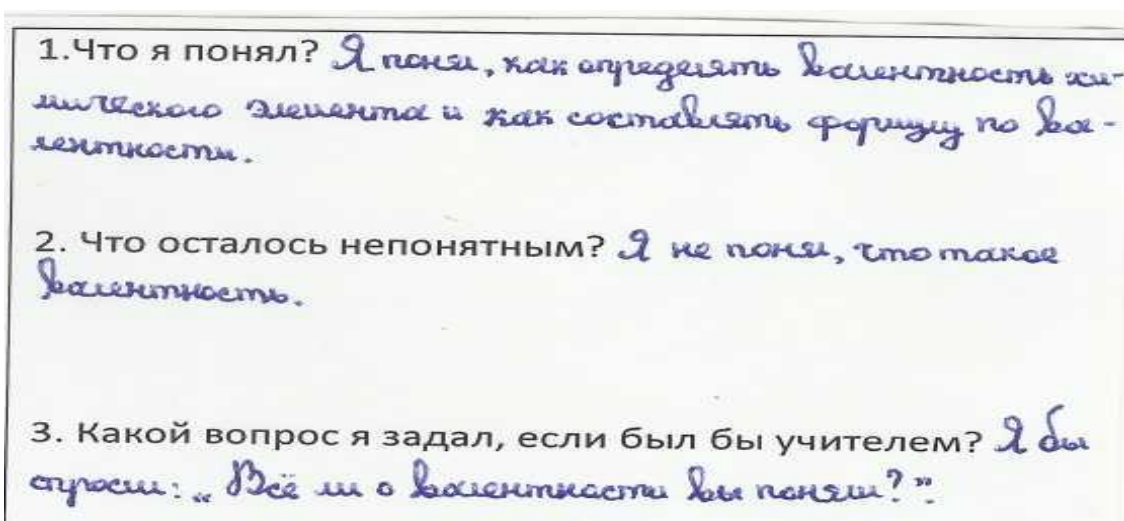 1.Что я понял? Я понял, как определять валентность хи-
мического элемента и как составлять формулу по ва-
лентности.
2. Что осталось непонятным? Я не понял, что такое
валентность.
3. Какой вопрос я задал, если был бы учителем? Я бы
спросил: „Всё ли о валентности вы поняли?".